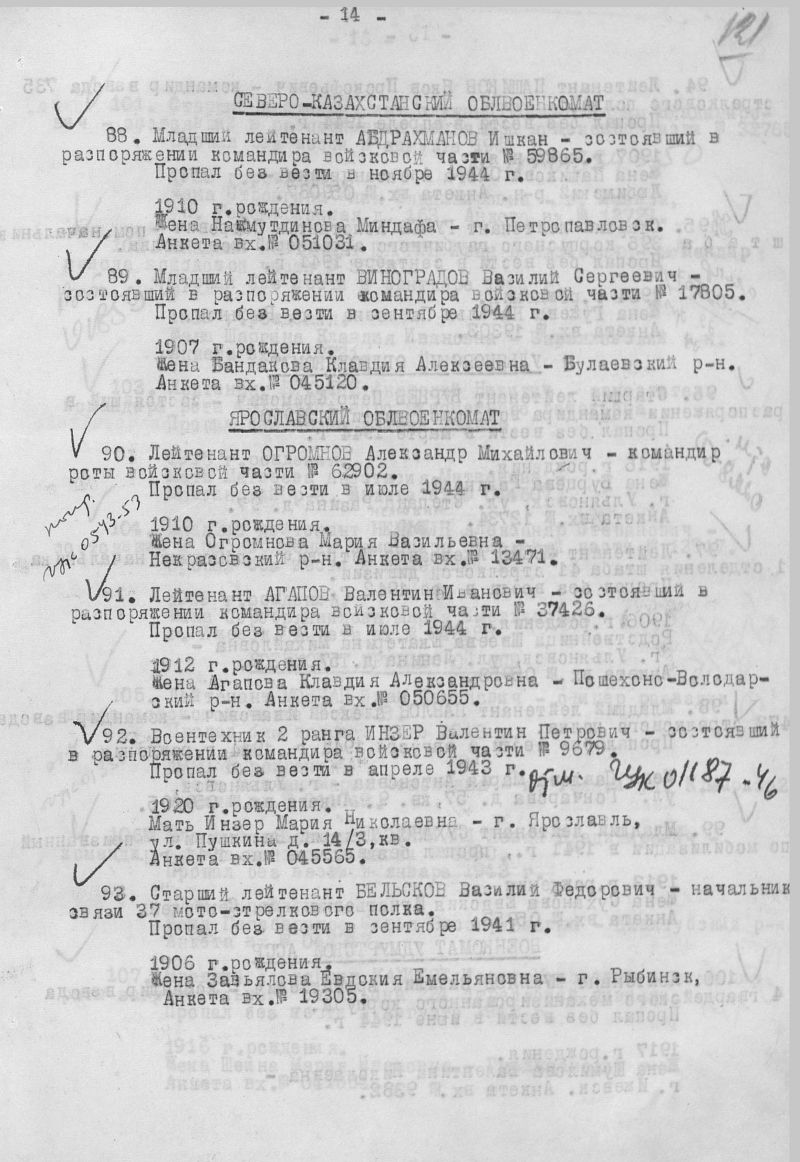 - 14 -
121
СЕВЕРО-КАЗАХСТАНСКИЙ ОБЛВОЕНКОМАТ
88. Младший лейтенант АБДРАХМАНОВ Ишкан - состоявший в
распоряжении командира войсковой части № 59865.
Пропал без вести в ноябре 1944 г.
1910 г.рождения.
Жена Нажмутдинова Миндафа - г. Петропавловск.
Анкета вх.№ 051031.
89. Младший лейтенант ВИНОГРАДОВ Василий Сергеевич -
состоявший в распоряжении командира войсковой части № 17805.
Пропал без вести в сентябре 1944 г.
1907 г.рождения.
Жена Бандакова Клавдия Алексеевна - Булаевский р-н.
Анкета вх.№ 045120.
ЯРОСЛАВСКИЙ ОБЛВОЕНКОМАТ
90. Лейтенант ОГРОМНОВ Александр Михайлович - командир
роты войсковой части № 62902.
Пропал без вести в июле 1944 г.
1910 г.рождения.
Жена Огромнова Мария Васильевна -
Некрасовский р-н. Анкета вх.№ 13471.
0543-53
91. Лейтенант АГАПОВ Валентин Иванович - состоявший в
распоряжении командира войсковой части № 37426.
Пропал без вести в июле 1944 г.
1912 г.рождения.
Жена Агапова Клавдия Александровна - Пошехоно-Володар-
ский р-н. Анкета вх.№ 050655.
92. Воентехник 2 ранга ИНЗЕР Валентин Петрович - состоявший
в распоряжении командира войсковой части № 9679.
Пропал без вести в апреле 1943 г.
01187-46
1920 г.рождения.
Мать Инзер Мария Николаевна - г. Ярославль,
ул. Пушкина д. 14/3,кв.
Анкета вх.№ 045565.
93. Старший лейтенант БЕЛЬСКОВ Василий Федорович - начальник
связи 37 мото-стрелкового полка.
Пропал без вести в сентябре 1941 г.
1906 г.рождения.
Жена Завьялова Евдокия Емельяновна - г. Рыбинск,
Анкета вх.№ 19305.